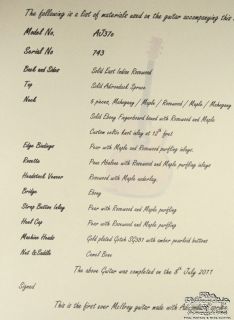 The following is a list of materials used on the guitar accompanying this
Model No. AJ37c
Serial No 743
Back and Sides Solid East Indian Rosewood
Top Solid Adirondack Spruce
Neck 5 pieces, Mahogany / Maple / Rosewood / Maple / Mahogany
Solid Ebony Fingerboard bound with Rosewood and Maple
Custom celtic knot inlay at 12th fret
Edge Bindings Pear with Maple and Rosewood purfling inlays
Rosette Paua Abalone with Rosewood and Maple purfling inlays
Headstock Veneer Rosewood with Maple underlay.
Bridge Ebony
Strap Button Inlay Pear with Rosewood and Maple purfling
Heel Cap Pear with Rosewood and Maple purfling
Machine Heads Gold plated Gotoh SG381 with amber pearloid buttons
Nut & Saddle Camel Bone
The above Guitar was completed on the 8th July 2011
Signed
This is the first ever McIlroy guitar made with